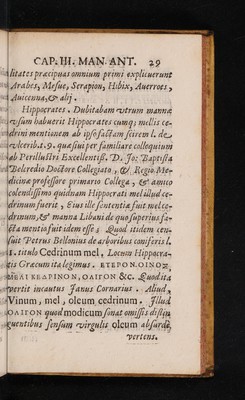 CAP. III. MAN. ANT. 29
litates præcipuas omnium primi explicuerunt
Arabes, Mesue, Serapion, Hibix, Auerroes,
Auicenna, & alij.
Hippocrates. Dubitabam vtrum manna
vsum habuerit Hippocrates cumq; mellis ce-
drini mentionem ab ipso factam scirem l. de
vlcerib. t. 9. quæsiui per familiare colloquium
ab Perillustri Excellentiß. D. Jo: Baptista
Belcredio Doctore Collegiato, & Regio Me-
dicinæ professore primario Collega, & amico
colendissimo quidnam Hippocrati mel illud ce-
drinum fuerit, Eius ille sententiæ fuit mel ce-
drinum, & manna Libani de quo superius fa-
cta mentio fuit idem esse; Quod itidem cen-
suit Petrus Bellonius de arboribus coniferis l.
1. titulo Cedrinum mel, Locum Hippocra-
tis Græcum ita legimus. ΕΤΕΡΟΝ. ΟΙΝΟΝ
ΜΕΛΙ ΚΕΔΡΙΝΟΝ, ΟΛΙΓΟΝ &c. Quod ita
vertit incautus Janus Cornarius. Aliud,
Vinum, mel, oleum cedrinum. Illud
ΟΛΙΓΟΝ quod modicum sonat omissis distin
guentibus sensum virgulis oleum absurdè,
vertens.